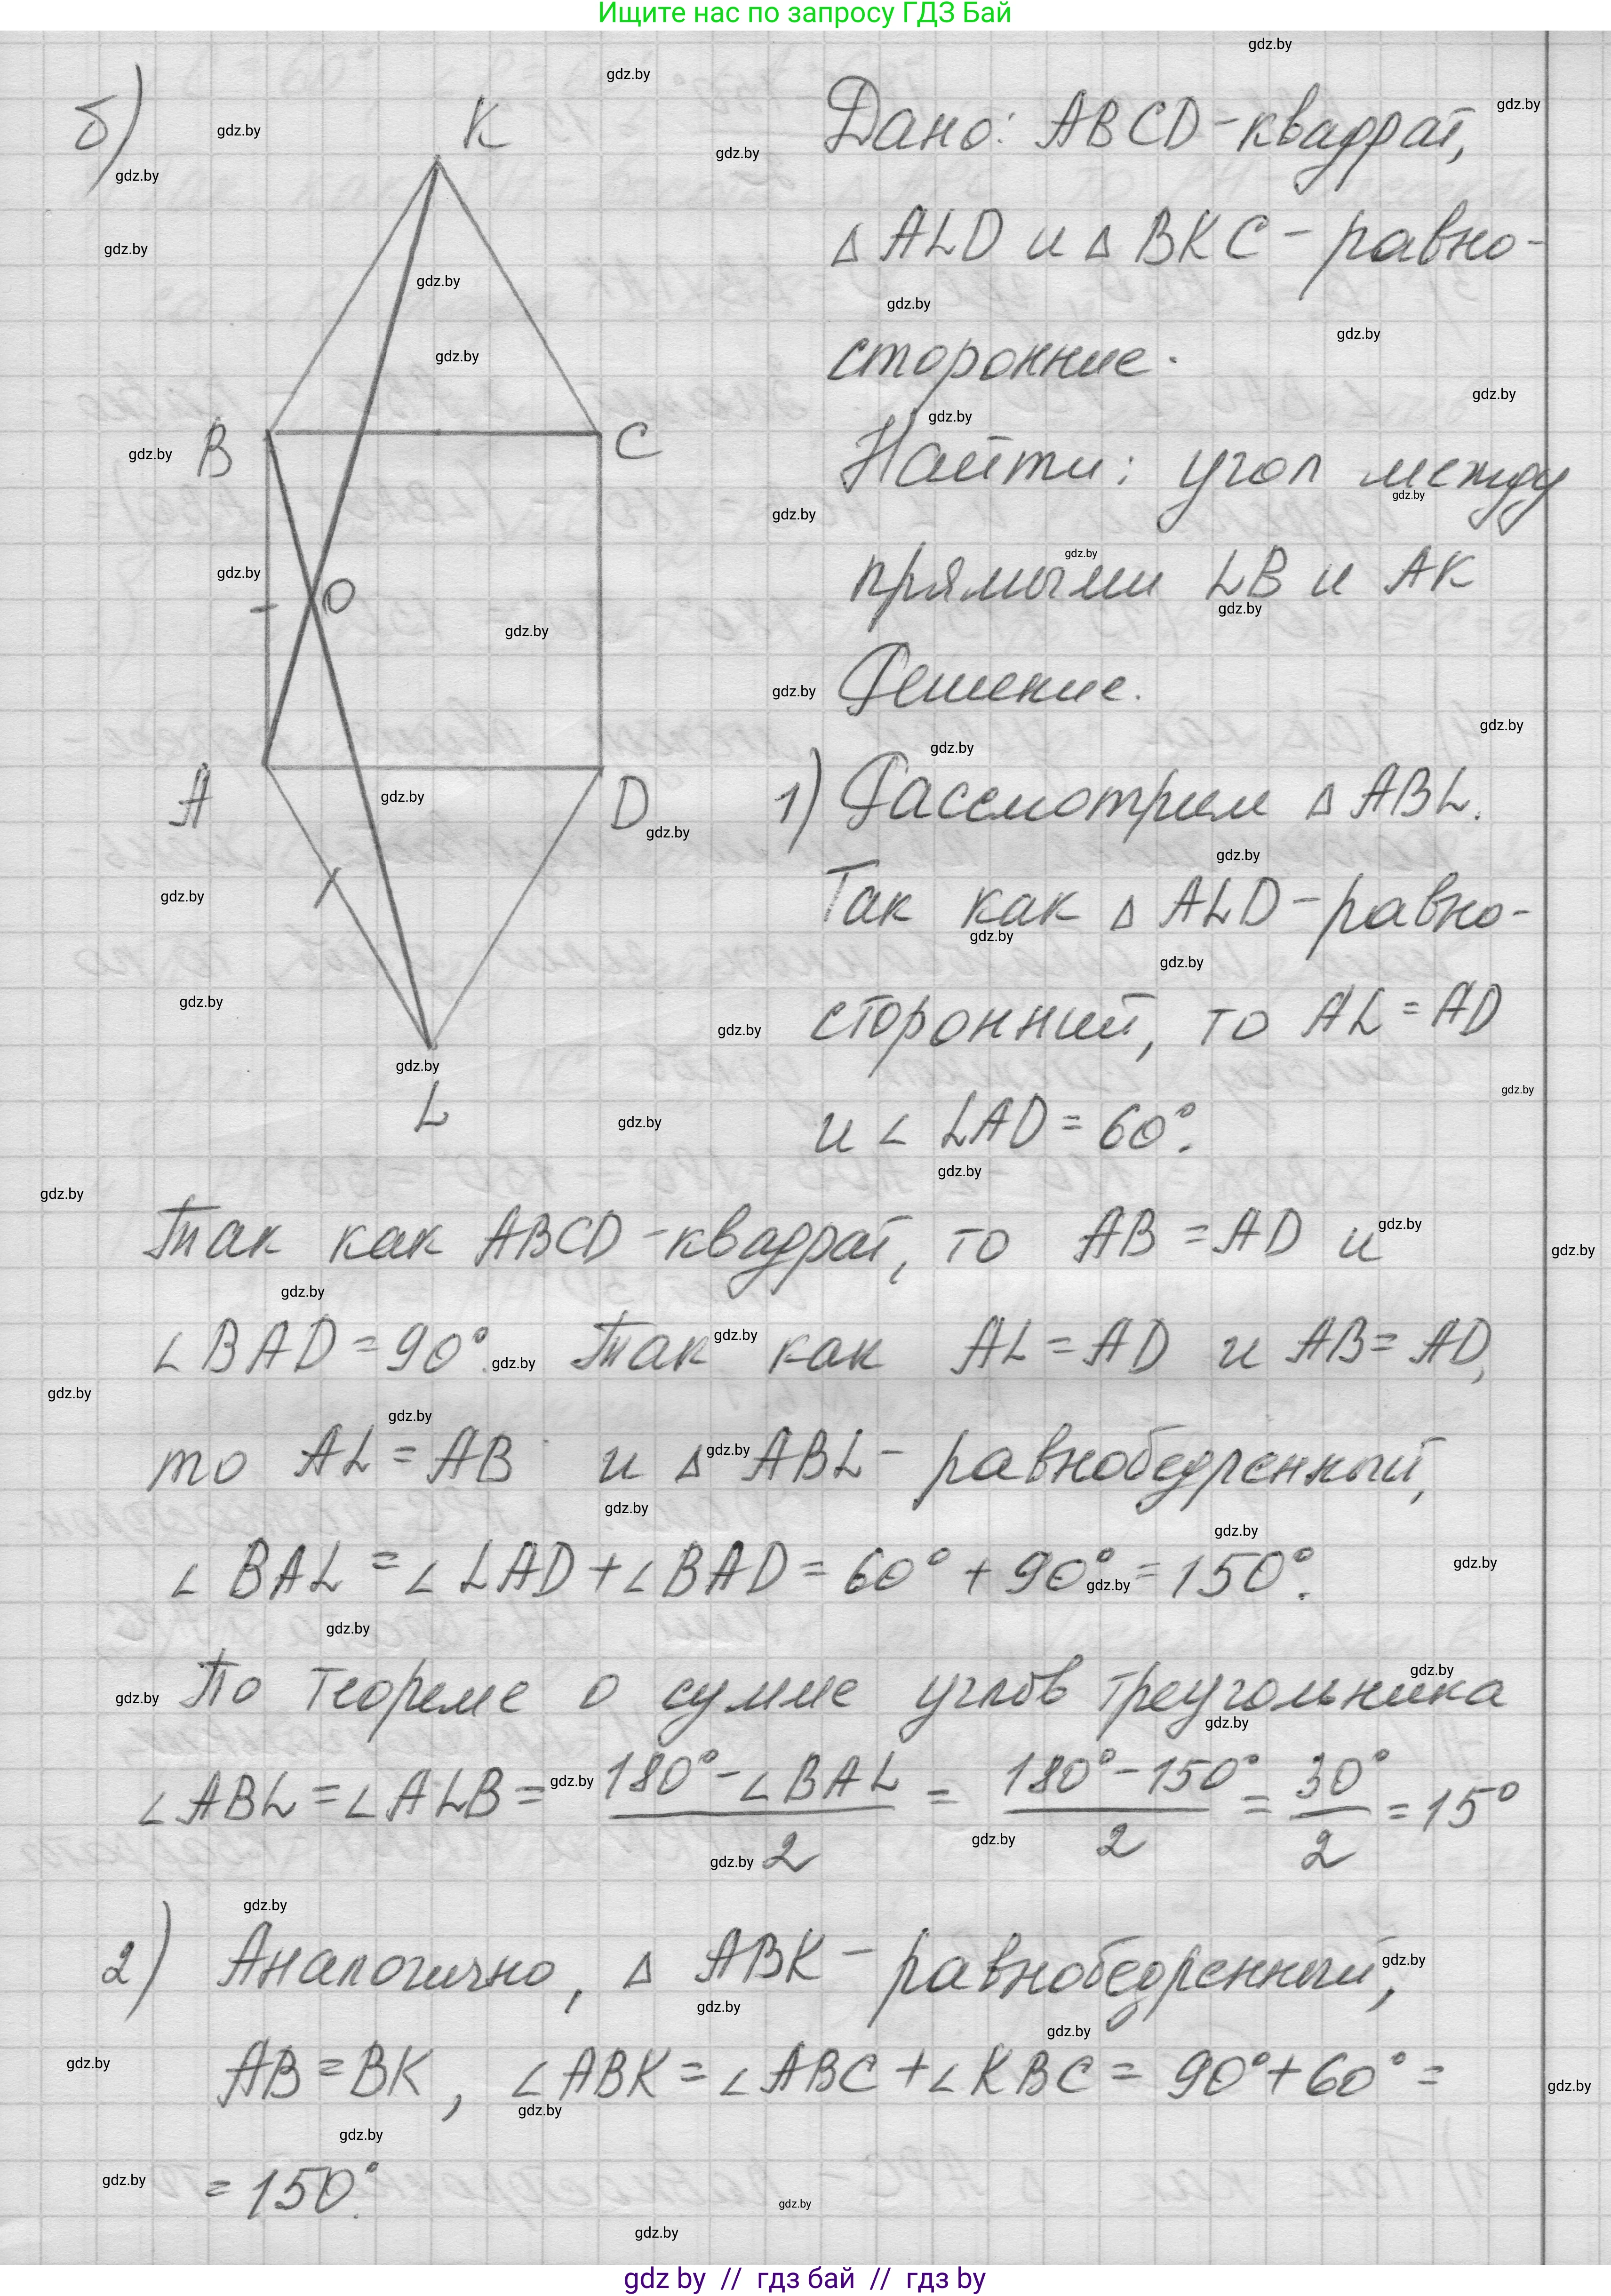 Ищите нас по запросу ГДЗ Бай
б)
K
B
C
O
A
D
L
Дано: ABCD-квадрат,
△ ALD и △ BKC - равно-
сторонние.
Найти: угол между
прямыми LB и AK
Решение.
1) Рассмотрим △ ABL.
Так как △ ALD - равно-
сторонний, то AL = AD
и ∠ LAD = 60°.
Так как ABCD-квадрат, то AB = AD и
∠ BAD = 90°. Так как AL = AD и AB = AD,
то AL = AB и △ ABL - равнобедренный,
∠ BAL = ∠ LAD + ∠ BAD = 60° + 90° = 150°.
По теореме о сумме углов треугольника
∠ ABL = ∠ ALB = (180° - ∠ BAL)/2 = (180° - 150°)/2 = 30°/2 = 15°
2) Аналогично, △ ABK - равнобедренный,
AB = BK, ∠ ABK = ∠ ABC + ∠ KBC = 90° + 60° =
= 150°.
gdz by // гдз бай // гдз by